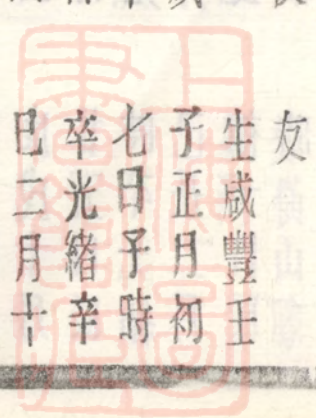 友
生咸豐壬
子正月初
七日子時
卒光緒辛
巳二月十